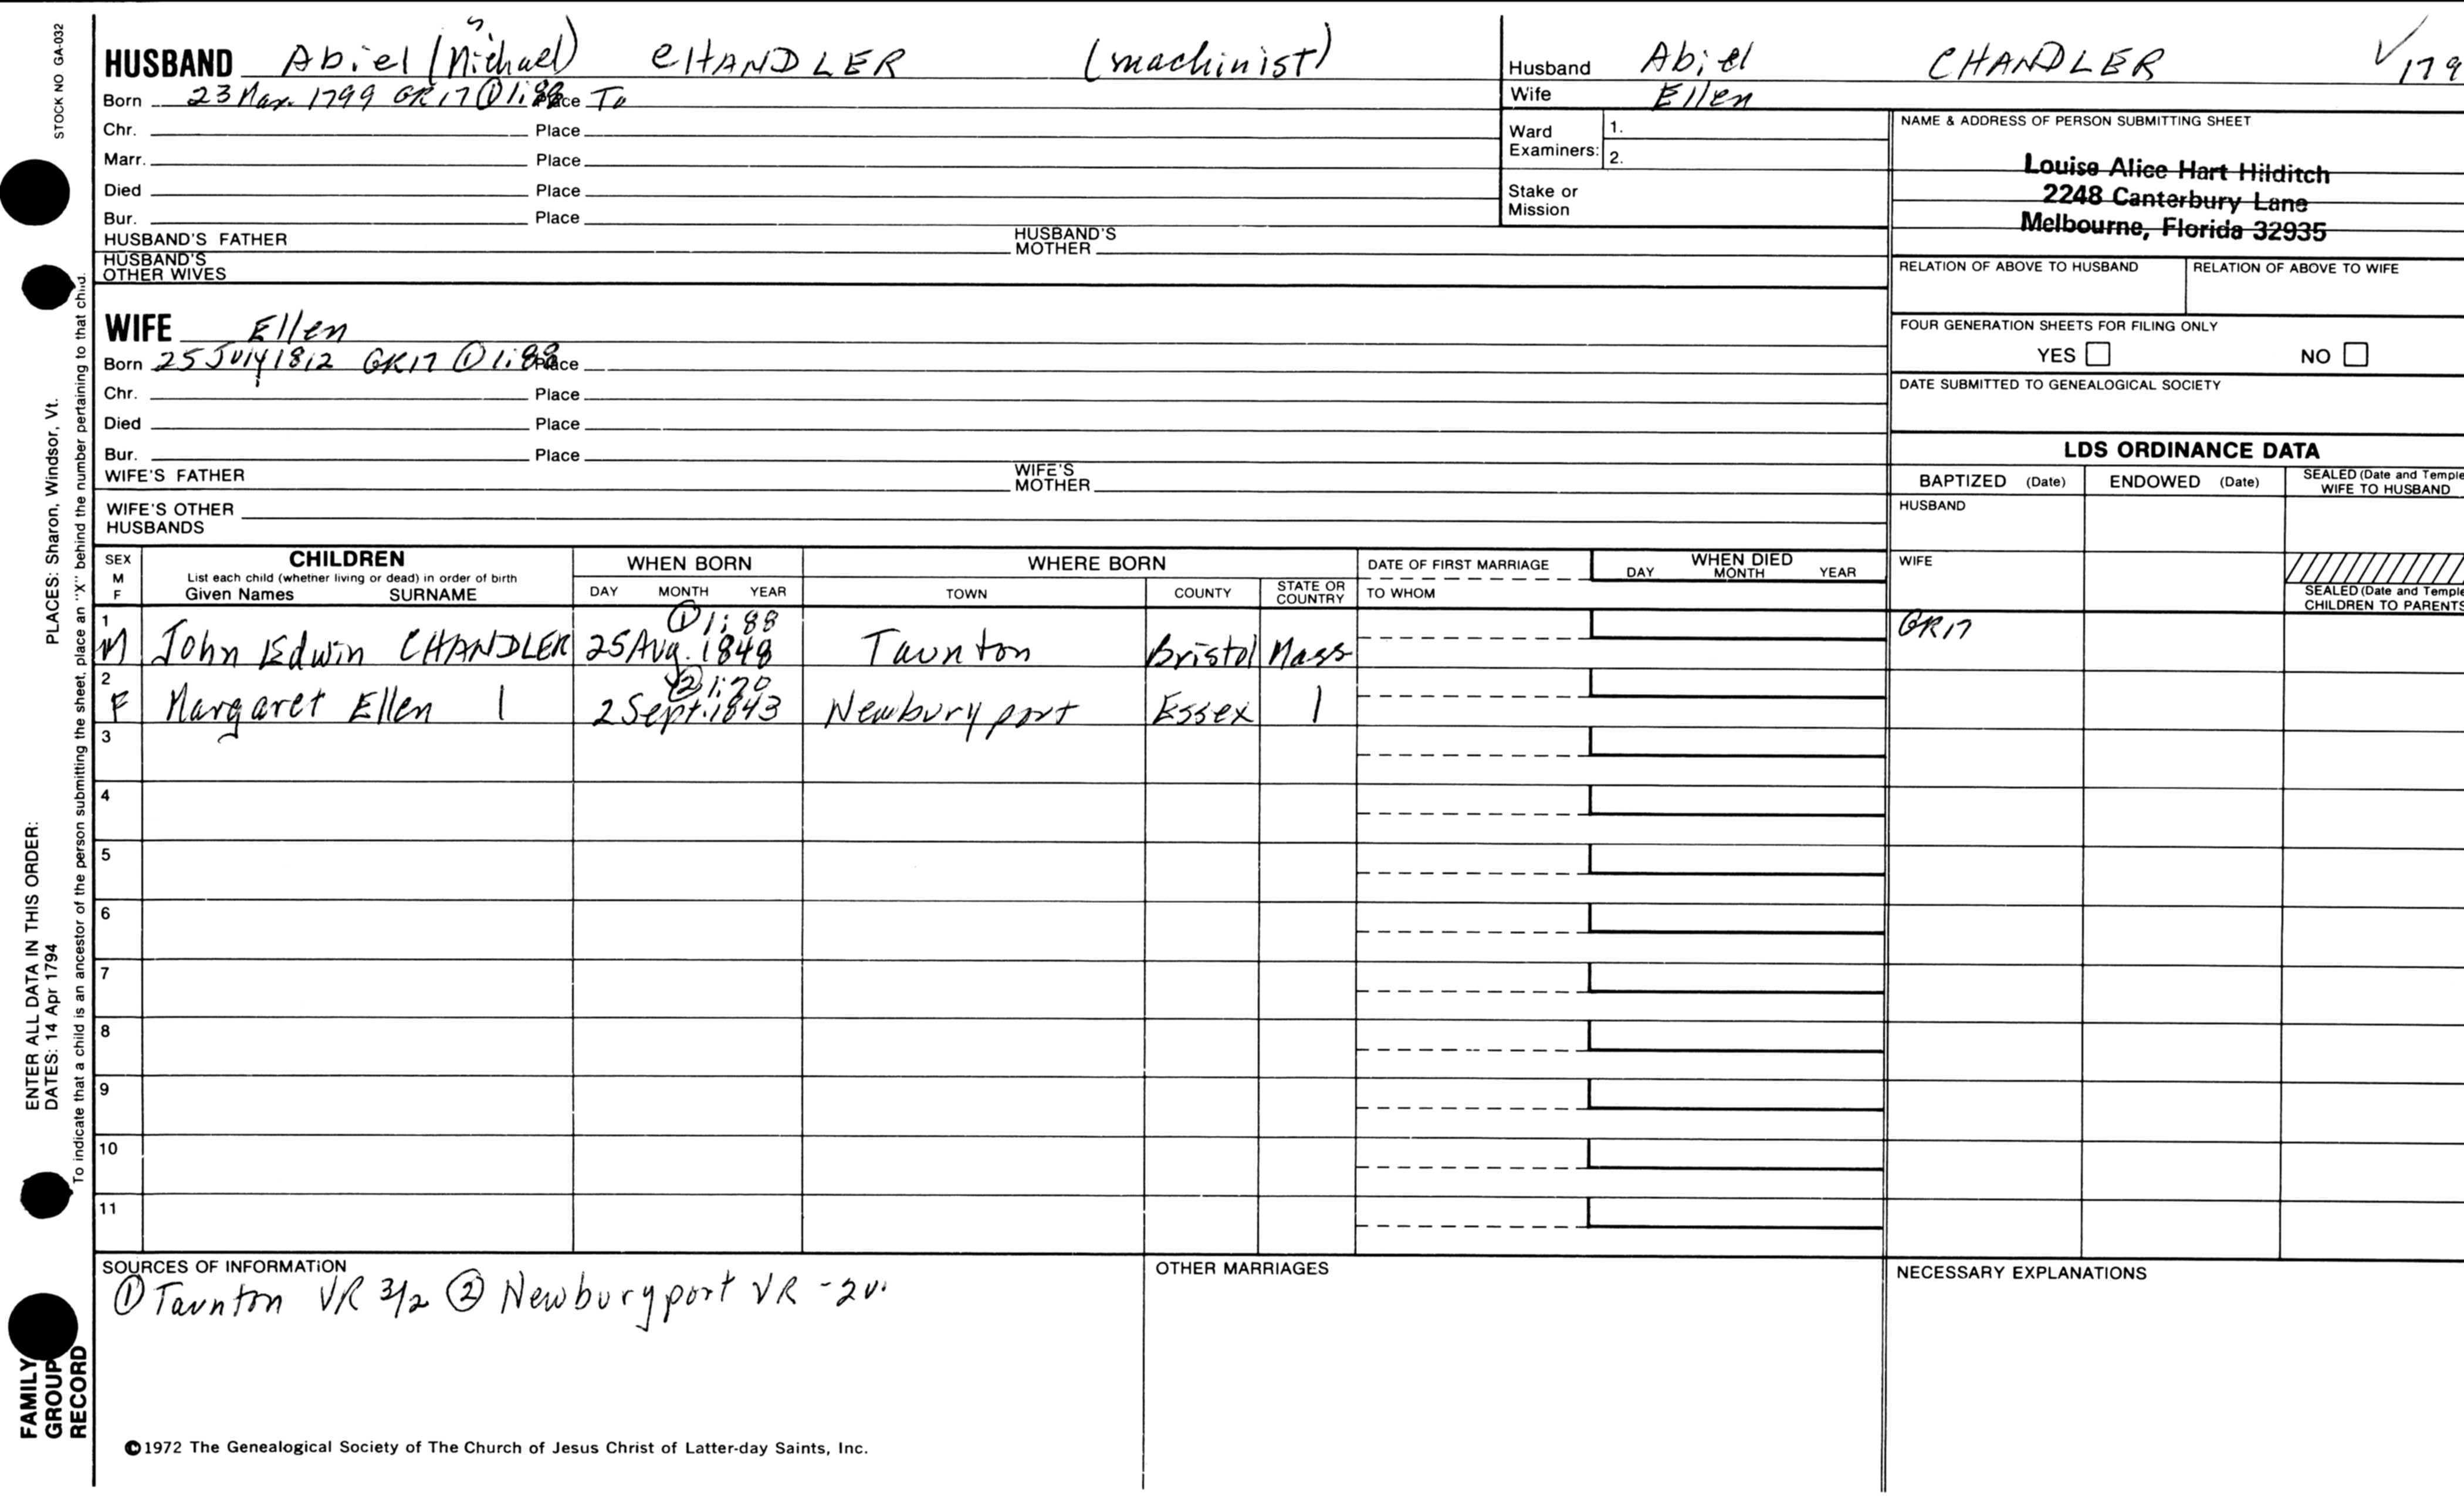 STOCK NO GA-032
HUSBAND Abiel (Michael) CHANDLER (machinist)
Born 23 Mar. 1799 GR17 ① 1:88 Place Ta
Chr. Place
Marr. Place
Died Place
Bur. Place
HUSBAND'S FATHER HUSBAND'S MOTHER
HUSBAND'S OTHER WIVES
WIFE Ellen
Born 25 July 1812 GR17 ① 1:88 Place
Chr. Place
Died Place
Bur. Place
WIFE'S FATHER WIFE'S MOTHER
WIFE'S OTHER HUSBANDS
Husband Abiel CHANDLER 179
Wife Ellen
Ward Examiners: 1.
2.
Stake or Mission
NAME & ADDRESS OF PERSON SUBMITTING SHEET
Louise Alice Hart Hilditch
2248 Canterbury Lane
Melbourne, Florida 32935
RELATION OF ABOVE TO HUSBAND RELATION OF ABOVE TO WIFE
FOUR GENERATION SHEETS FOR FILING ONLY
YES NO
DATE SUBMITTED TO GENEALOGICAL SOCIETY
LDS ORDINANCE DATA
BAPTIZED (Date) ENDOWED (Date) SEALED (Date and Temple
WIFE TO HUSBAND
HUSBAND
WIFE
SEALED (Date and Temple
CHILDREN TO PARENTS
SEX M F CHILDREN
List each child (whether living or dead) in order of birth
Given Names SURNAME
WHEN BORN
DAY MONTH YEAR
WHERE BORN
TOWN COUNTY STATE OR COUNTRY
DATE OF FIRST MARRIAGE
TO WHOM
WHEN DIED
DAY MONTH YEAR
① 1:88
1 M John Edwin CHANDLER 25 Aug. 1848 Taunton Bristol Mass GR17
② 1:70
2 F Margaret Ellen 2 Sept. 1843 Newburyport Essex
3
4
5
6
7
8
9
10
11
SOURCES OF INFORMATION
① Taunton VR 3/2 ② Newburyport VR - 2v.
OTHER MARRIAGES
NECESSARY EXPLANATIONS
©1972 The Genealogical Society of The Church of Jesus Christ of Latter-day Saints, Inc.
PLACES: Sharon, Windsor, Vt.
ENTER ALL DATA IN THIS ORDER:
DATES: 14 Apr 1794
To indicate that a child is an ancestor of the person submitting the sheet, place an "X" behind the number pertaining to that child.
FAMILY
GROUP
RECORD